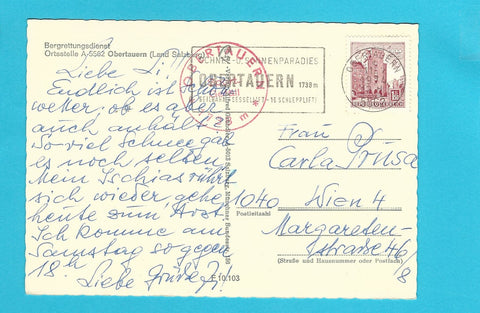 Bergrettungsdienst
Ortsstelle A-5562 Obertauern (Land Salzburg)
SCHNEE-U.SONNENPARADIES
OBERTAUERN 1738 m
OBERTAUERN
OBERTAUERN
REPUBLIK ÖSTERREICH
Liebe Li!
Endlich ist schön
wetter, ob es aber
auch anhält.
So viel Schnee gab
es noch selten.
Mein Ischias rührt
sich wieder, gehe
heute zum Arzt.
Ich komme am
Samstag so gegen
18h.
Liebe Grüße!
Frau
Carla Prusa
1040 Wien 4
Postleitzahl
Margareten-
strasse 46/8
(Straße und Hausnummer oder Postfach)
E 10.103